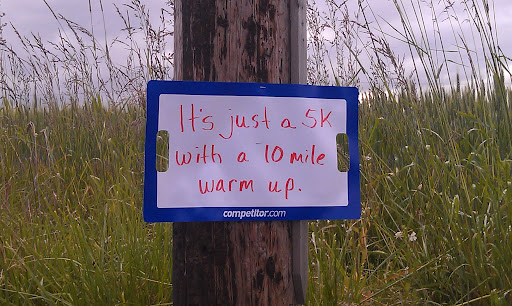 It's just a 5K
with a 10 mile
warm up.
competitor.com